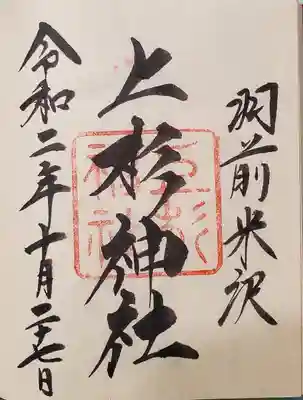 羽前米沢
上杉神社
上杉神社
令和二年十月二十七日